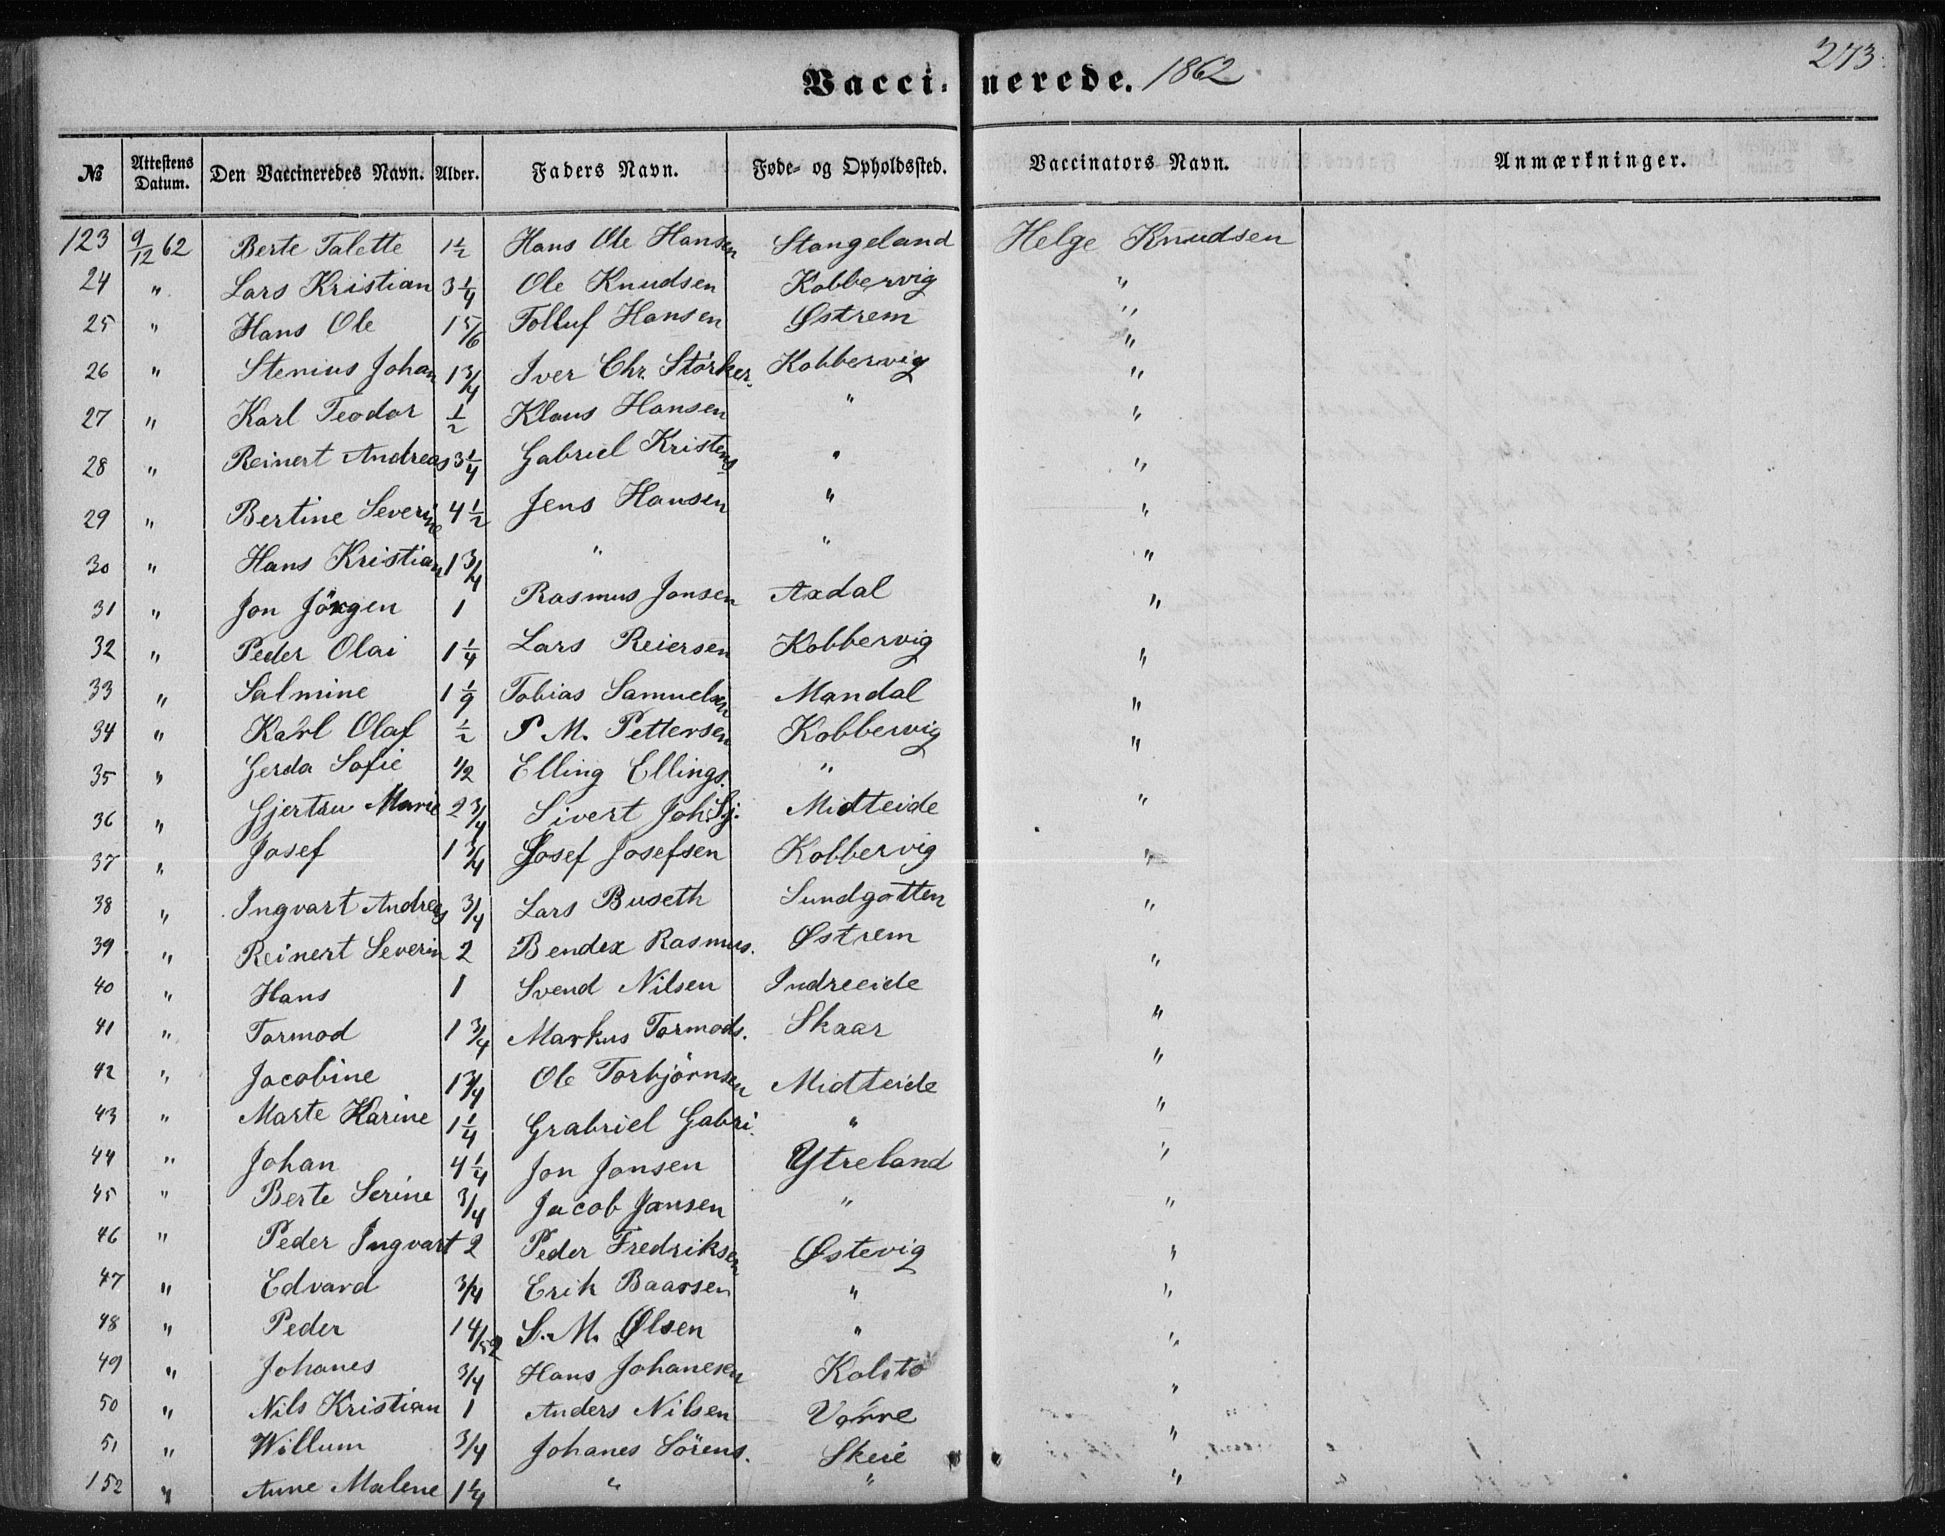 273.
Vaccinerede. 1862
№ Attestens Datum. Den Vaccineredes Navn. Alder. Faders Navn. Føde- og Opholdssted. Vaccinators Navn. Anmærkninger.
123 9/12 62 Berte Talette 1 1/2 Hans Ole Hansen Stangeland Helge Knudsen
24 " Lars Kristian 3 1/4 Ole Knudsen Kobbervig "
25 " Hans Ole 1 5/6 Tolluf Hansen Østrem "
26 " Stenius Johan 1 3/4 Iver Chr. Störker. Kobbervig "
27 " Karl Teodor 1/2 Klaus Hansen " "
28 " Reinert Andreas 3 1/4 Gabriel Kristens " "
29 " Bertine Severine 4 1/2 Jens Hansen " "
30 " Hans Kristian 1 3/4 " " "
31 " Jon Jörgen 1 Rasmus Jonsen Axdal "
32 " Peder Olai 1 1/4 Lars Reiersen Kobbervig "
33 " Salmine 1 1/9 Tobias Samuelsen Mandal "
34 " Karl Olaf 1/2 P M. Pettersen Kobbervig "
35 " Gerda Sofie 1/2 Elling Ellings. " "
36 " Gjertru Marie 2 3/4 Sivert Joh. Sj. Midteide "
37 " Josef 1 3/4 Josef Josefsen Kobbervig "
38 " Ingvart Andreas 3/4 Lars Buseth Sundgotten "
39 " Reinert Severin 2 Bendex Rasmus. Østrem "
40 " Hans 1 Svend Nilsen Indreeide "
41 " Tormod 1 3/4 Markus Tormods. Skaar "
42 " Jacobine 1 3/4 Ole Torbjörnsen Midteide "
43 " Marte Karine 1 1/4 Grabriel Gabri. " "
44 " Johan 4 1/4 Jon Jonsen Ytreland "
45 " Berte Serine 3/4 Jacob Jansen " "
46 " Peder Ingvart 2 Peder Fredriksen Østevig "
47 " Edvard 3/4 Erik Baarsen " "
48 " Peder 14/52 S. M. Ølsen " "
49 " Johanes 3/4 Hans Johanesen Kolstö "
50 " Nils Kristian 1 Anders Nilsen Vorre "
51 " Willum 3/4 Johanes Sörens. Skeie "
152 " Anne Malene 1 1/4 " "